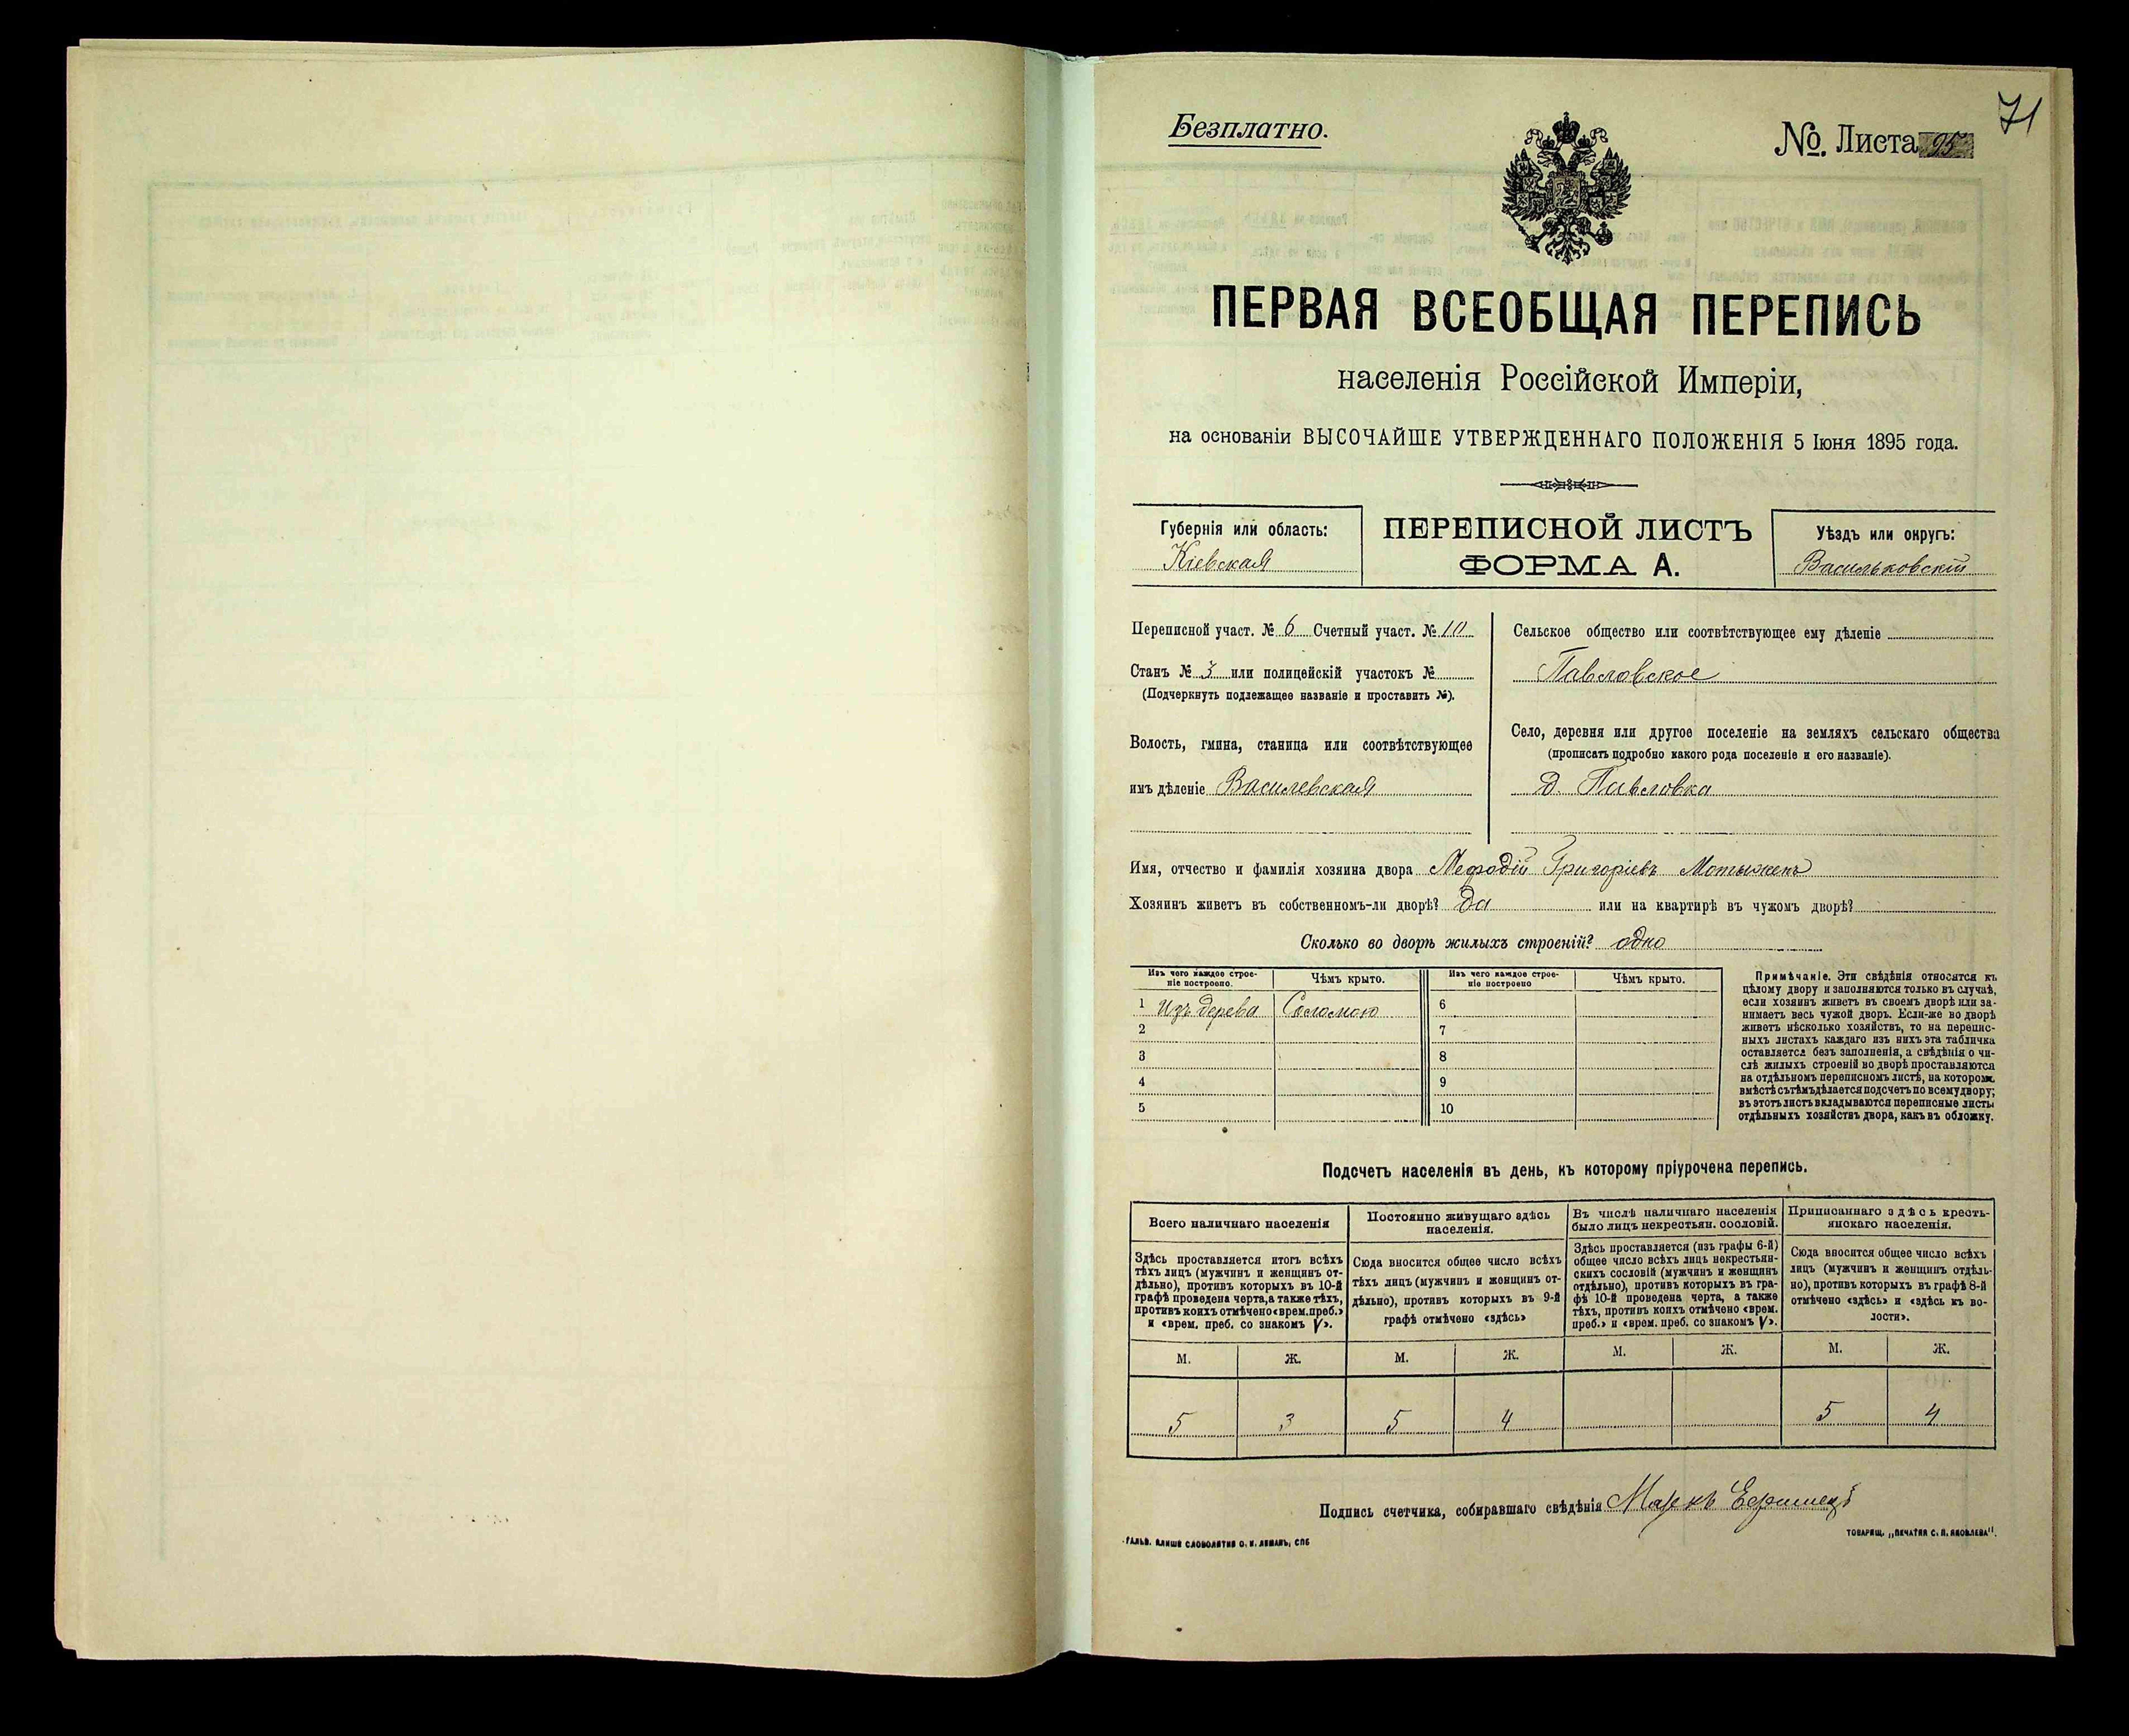 71
Безплатно.
№ Листа 95
ПЕРВАЯ ВСЕОБЩАЯ ПЕРЕПИСЬ
населенія Россійской Имперіи,
на основаніи ВЫСОЧАЙШЕ УТВЕРЖДЕННАГО ПОЛОЖЕНІЯ 5 Іюня 1895 года.
Губернія или область:
Кіевская
ПЕРЕПИСНОЙ ЛИСТЪ
ФОРМА А.
Уѣздъ или округъ:
Васильковскій
Переписной участ. № 6 Счетный участ. № 10
Станъ № 3 или полицейскій участокъ №
(Подчеркнуть подлежащее названіе и проставить №).
Волость, гмина, станица или соотвѣтствующее
имъ дѣленіе Василевская
Сельское общество или соотвѣтствующее ему дѣленіе
Павловское
Село, деревня или другое поселеніе на земляхъ сельскаго общества
(прописать подробно какого рода поселеніе и его названіе).
д. Павловка
Имя, отчество и фамилія хозяина двора Мефодій Григоріевъ Мотыжен
Хозяинъ живетъ въ собственномъ-ли дворѣ? Да или на квартирѣ въ чужомъ дворѣ?
Сколько во дворѣ жилыхъ строеній? одно
Изъ чего каждое строе-
ніе построено.
Чѣмъ крыто.
Изъ чего каждое строе-
ніе построено
Чѣмъ крыто.
1 Изъ дерева Соломою 6
2 7
3 8
4 9
5 10
Примѣчаніе. Эти свѣдѣнія относятся къ
цѣлому двору и заполняются только въ случаѣ,
если хозяинъ живетъ въ своемъ дворѣ или за-
нимаетъ весь чужой дворъ. Если-же во дворѣ
живетъ нѣсколько хозяйствъ, то на перепис-
ныхъ листахъ каждаго изъ нихъ эта табличка
оставляется безъ заполненія, а свѣдѣнія о чи-
слѣ жилыхъ строеній во дворѣ проставляются
на отдѣльномъ переписномъ листѣ, на которомъ
вмѣстѣ съ тѣмъ дѣлается подсчетъ по всему двору;
въ этотъ листъ вкладываются переписные листы
отдѣльныхъ хозяйствъ двора, какъ въ обложку.
Подсчетъ населенія въ день, къ которому пріурочена перепись.
Всего наличнаго населенія
Здѣсь проставляется итогъ всѣхъ
тѣхъ лицъ (мужчинъ и женщинъ от-
дѣльно), противъ которыхъ въ 10-й
графѣ проведена черта, а также тѣхъ,
противъ коихъ отмѣчено «врем. преб.»
и «врем. преб. со знакомъ V».
Постоянно живущаго здѣсь
населенія.
Сюда вносится общее число всѣхъ
тѣхъ лицъ (мужчинъ и женщинъ от-
дѣльно), противъ которыхъ въ 9-й
графѣ отмѣчено «здѣсь»
Въ числѣ наличнаго населенія
было лицъ некрестьян. сословій.
Здѣсь проставляется (изъ графы 6-й)
общее число всѣхъ лицъ некрестьян-
скихъ сословій (мужчинъ и женщинъ
отдѣльно), противъ которыхъ въ гра-
фѣ 10-й проведена черта, а также
тѣхъ, противъ коихъ отмѣчено «врем.
преб.» и «врем. преб. со знакомъ V».
Приписаннаго здѣсь кресть-
янскаго населенія.
Сюда вносится общее число всѣхъ
лицъ (мужчинъ и женщинъ отдѣль-
но), противъ которыхъ въ графѣ 8-й
отмѣчено «здѣсь» и «здѣсь къ во-
лости».
М. Ж. М. Ж. М. Ж. М. Ж.
5 3 5 4 5 4
Подпись счетчика, собиравшаго свѣдѣнія Маркъ
ГАЛЬВ. КЛИШЕ СЛОВОЛИТНИ О. И. ЛЕМАНЪ, СПБ
ТОВАРИЩ. „ПЕЧАТНЯ С. П. ЯКОВЛЕВА".